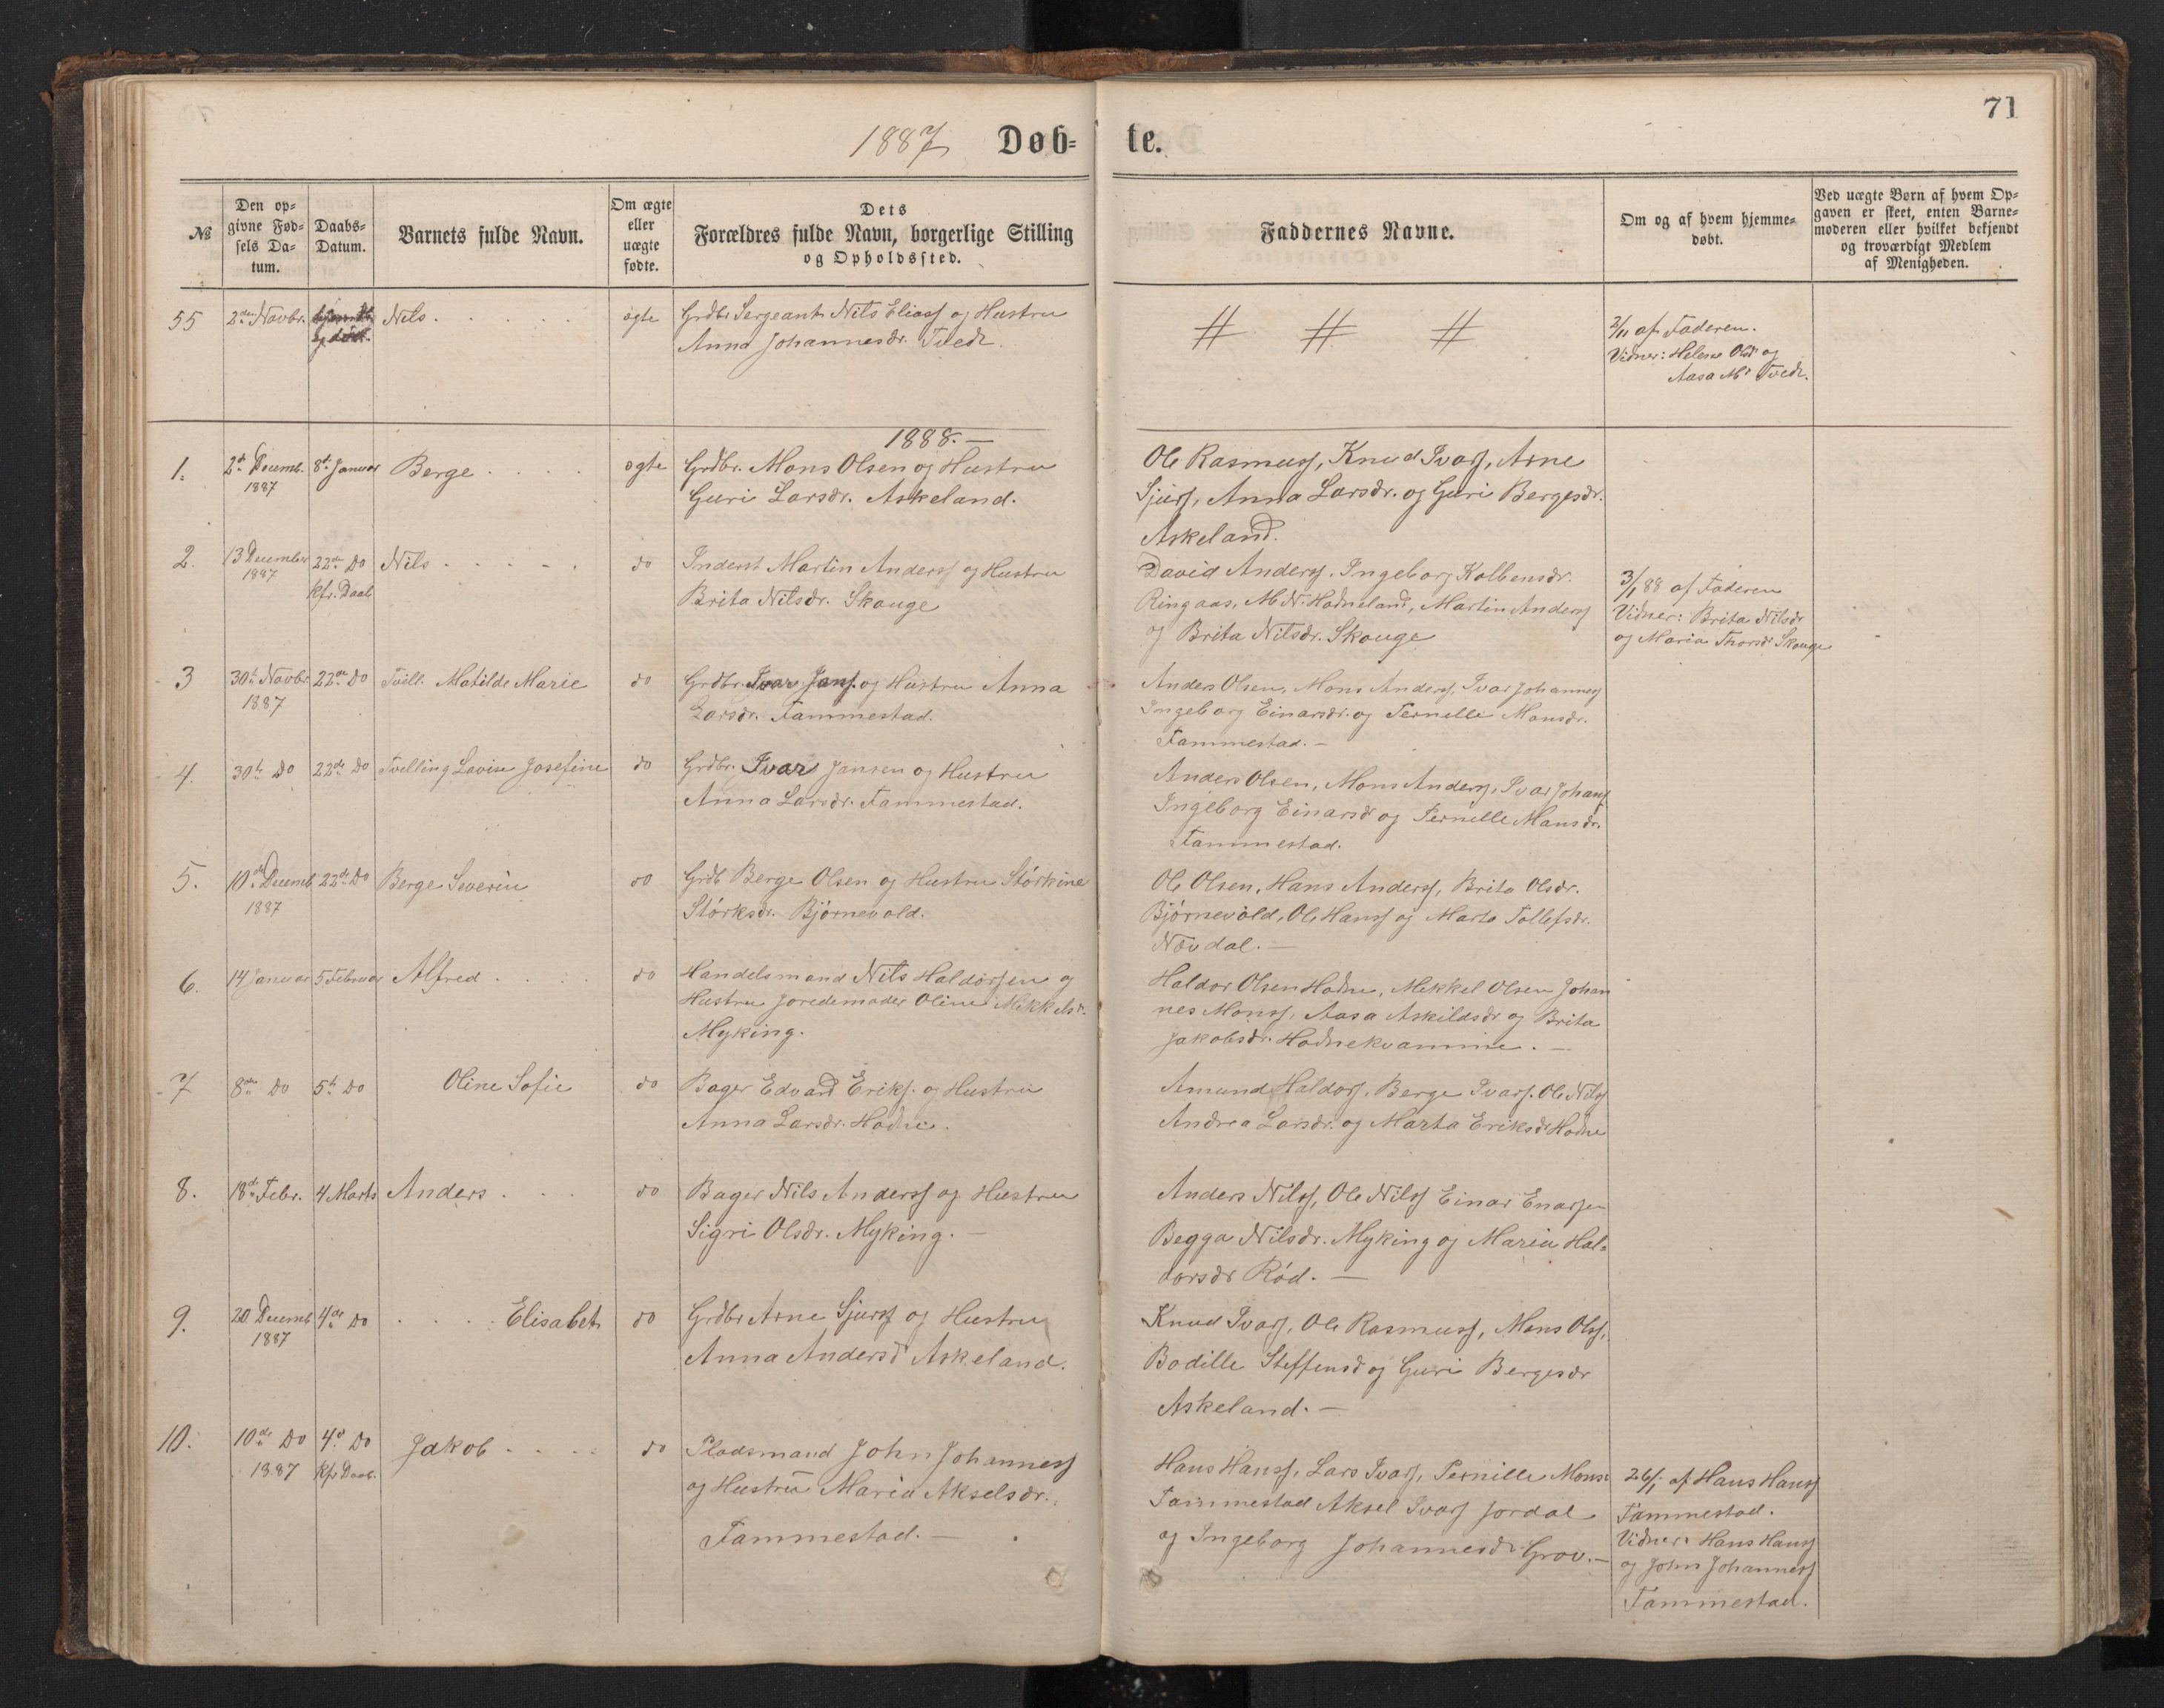 71
1887 Døb- te.
№
Den op-
givne Fød-
sels Da-
tum.
Daabs-
Datum.
Barnets fulde Navn.
Om ægte
eller
uægte
fødte.
Dets
Forældres fulde Navn, borgerlige Stilling
og Opholdssted.
Faddernes Navne.
Om og af hvem hjemme-
døbt.
Ved uægte Børn af hvem Op-
gaven er skeet, enten Barne-
moderen eller hvilket bekjendt
og troværdigt Medlem
af Menigheden.
55 2den Novbr. Nils . . . . . ægte Grdbr. Sergeant Nils Eliass og Hustru
Anna Johannesdr. Tvedt.
# # #
2/11 af Faderen.
Vidner: Helene Olsdr og
Aasa Md Tvedt.
1888. —
1. 2de Decemb. 8de Januar Berge . . . . ægte Grdbr. Mons Olsen og Hustru
1887 Guri Larsdr. Askeland.
Ole Rasmuss, Knud Ivars, Arne
Sjurs, Anna Larsdr. og Guri Bergesdr.
Askeland.
2. 13 December 22de Do Nils . . . . . do Inderst Martin Anderss og Hustru
1887 Kfr. Daab Brita Nilsdr. Skauge
David Anderss. Ingeborg Kolbensdr.
Ringaas, M. N. Hodneland, Martin Anderss
og Brita Nilsdr. Skauge
3/1 88 af Faderen
Vidner: Brita Nilsdr
og Maria Thorsdr Skauge
3 30te Novbr. 22de Do Tvill. Matilde Marie do Grdbr. Ivar Jans. og Hustru Anna
1887 Larsdr. Tammestad.
Anders Olsen, Mons Anderss, Ivar Johanness
Ingeborg Einarsdr. og Pernille Monsdr.
Tammestad. —
4. 30te Do 22de Do Tvilling Lovise Josefine do Grdbr. Ivar Jansen og Hustru
Anna Larsdr. Tammestad.
Anders Olsen, Mons Anderss, Ivar Johans
Ingeborg Einarsdr og Pernille Monsdr.
Tammestad.
5. 10de Decemb 22de Do Berge Severin do Grdb Berge Olsen og Hustru Størkine
1887 Størksdr. Bjørnevold.
Ole Olsen, Hans Anderss, Brita Olsdr.
Bjørnevold, Ole Hanss og Marta Tollefsdr.
Nævdal. —
6. 14 Januar 5 Februar Alfred . . . . do Handelsmand Nils Haldorsen og
Hustru Joredemoder Oline Mikkelsdr.
Myking.
Haldor Olsen Hodne, Mikkel Olsen Johan
nes Monss, Aasa Askildsdr og Brita
Jakobsdr. Hodnekvamme. —
7 8de Do 5te Do Oline Sofie do Bager Edvard Eriks. og Hustru
Anna Larsdr. Hodne.
Amund Haldors, Berge Ivars. Ole Nilss
Andrea Larsdr. og Marta Eriksdr Hodne
8. 18de Febr. 4 Marts Anders . . . do Bager Nils Anderss og Hustru
Sigri Olsdr. Myking. —
Anders Nilss, Ole Nilss Einar Enarsen
Begga Nilsdr. Myking og Maria Hal-
dorsdr Rød. —
9. 20 Decemb 4de Do . . . . Elisabet do Grdbr Arne Sjurss og Hustru
1887 Anna Andersd Askeland.
Knud Ivars, Ole Rasmuss, Mons Olss,
Bodille Steffensd og Guri Bergesdr
Askeland. —
10. 10de Do 4de Do Jakob . . . . do Pladsmand John Johanness
1887 Kfr Daab. og Hustru Maria Akselsdr.
Tammestad. —
Hans Hanss, Lars Ivars, Pernille Mons-
Tammestad Aksel Ivars Jordal
og Ingeborg Johannesdr Grov. —
26/1 af Hans Hanss
Tammestad.
Vidner: Hans Hanss
og John Johanness
Tammestad.